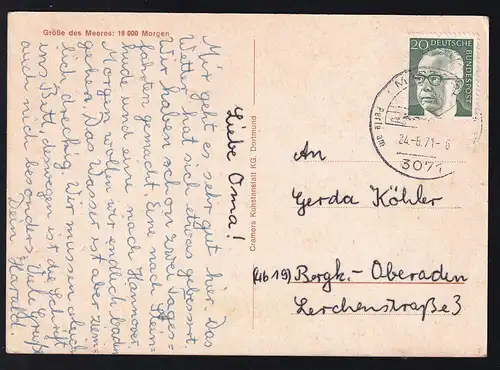 Größe des Meeres: 18 000 Morgen
Liebe Oma!
Mir geht es sehr gut hier. Das
Wetter hat sich etwas gebessert.
Wir haben schon zwei Tages-
fahrten gemacht. Eine nach Stein-
hude und eine nach Hannover.
Morgen wollen wir endlich baden
gehen. Das Wasser ist aber ziem-
lich dreckig. Wir müssen gleich
ins Bett, deswegen ist die Schrift
auch nich besonders. Viele Grüße
Dein Harald.
Cramers Kunstanstalt KG, Dortmund
20 DEUTSCHE
BUNDESPOST
Perle am
24.-6.71-6
3071
An
Gerda Köhler
(4619) Bergk.-Oberaden
Lerchenstraße 3